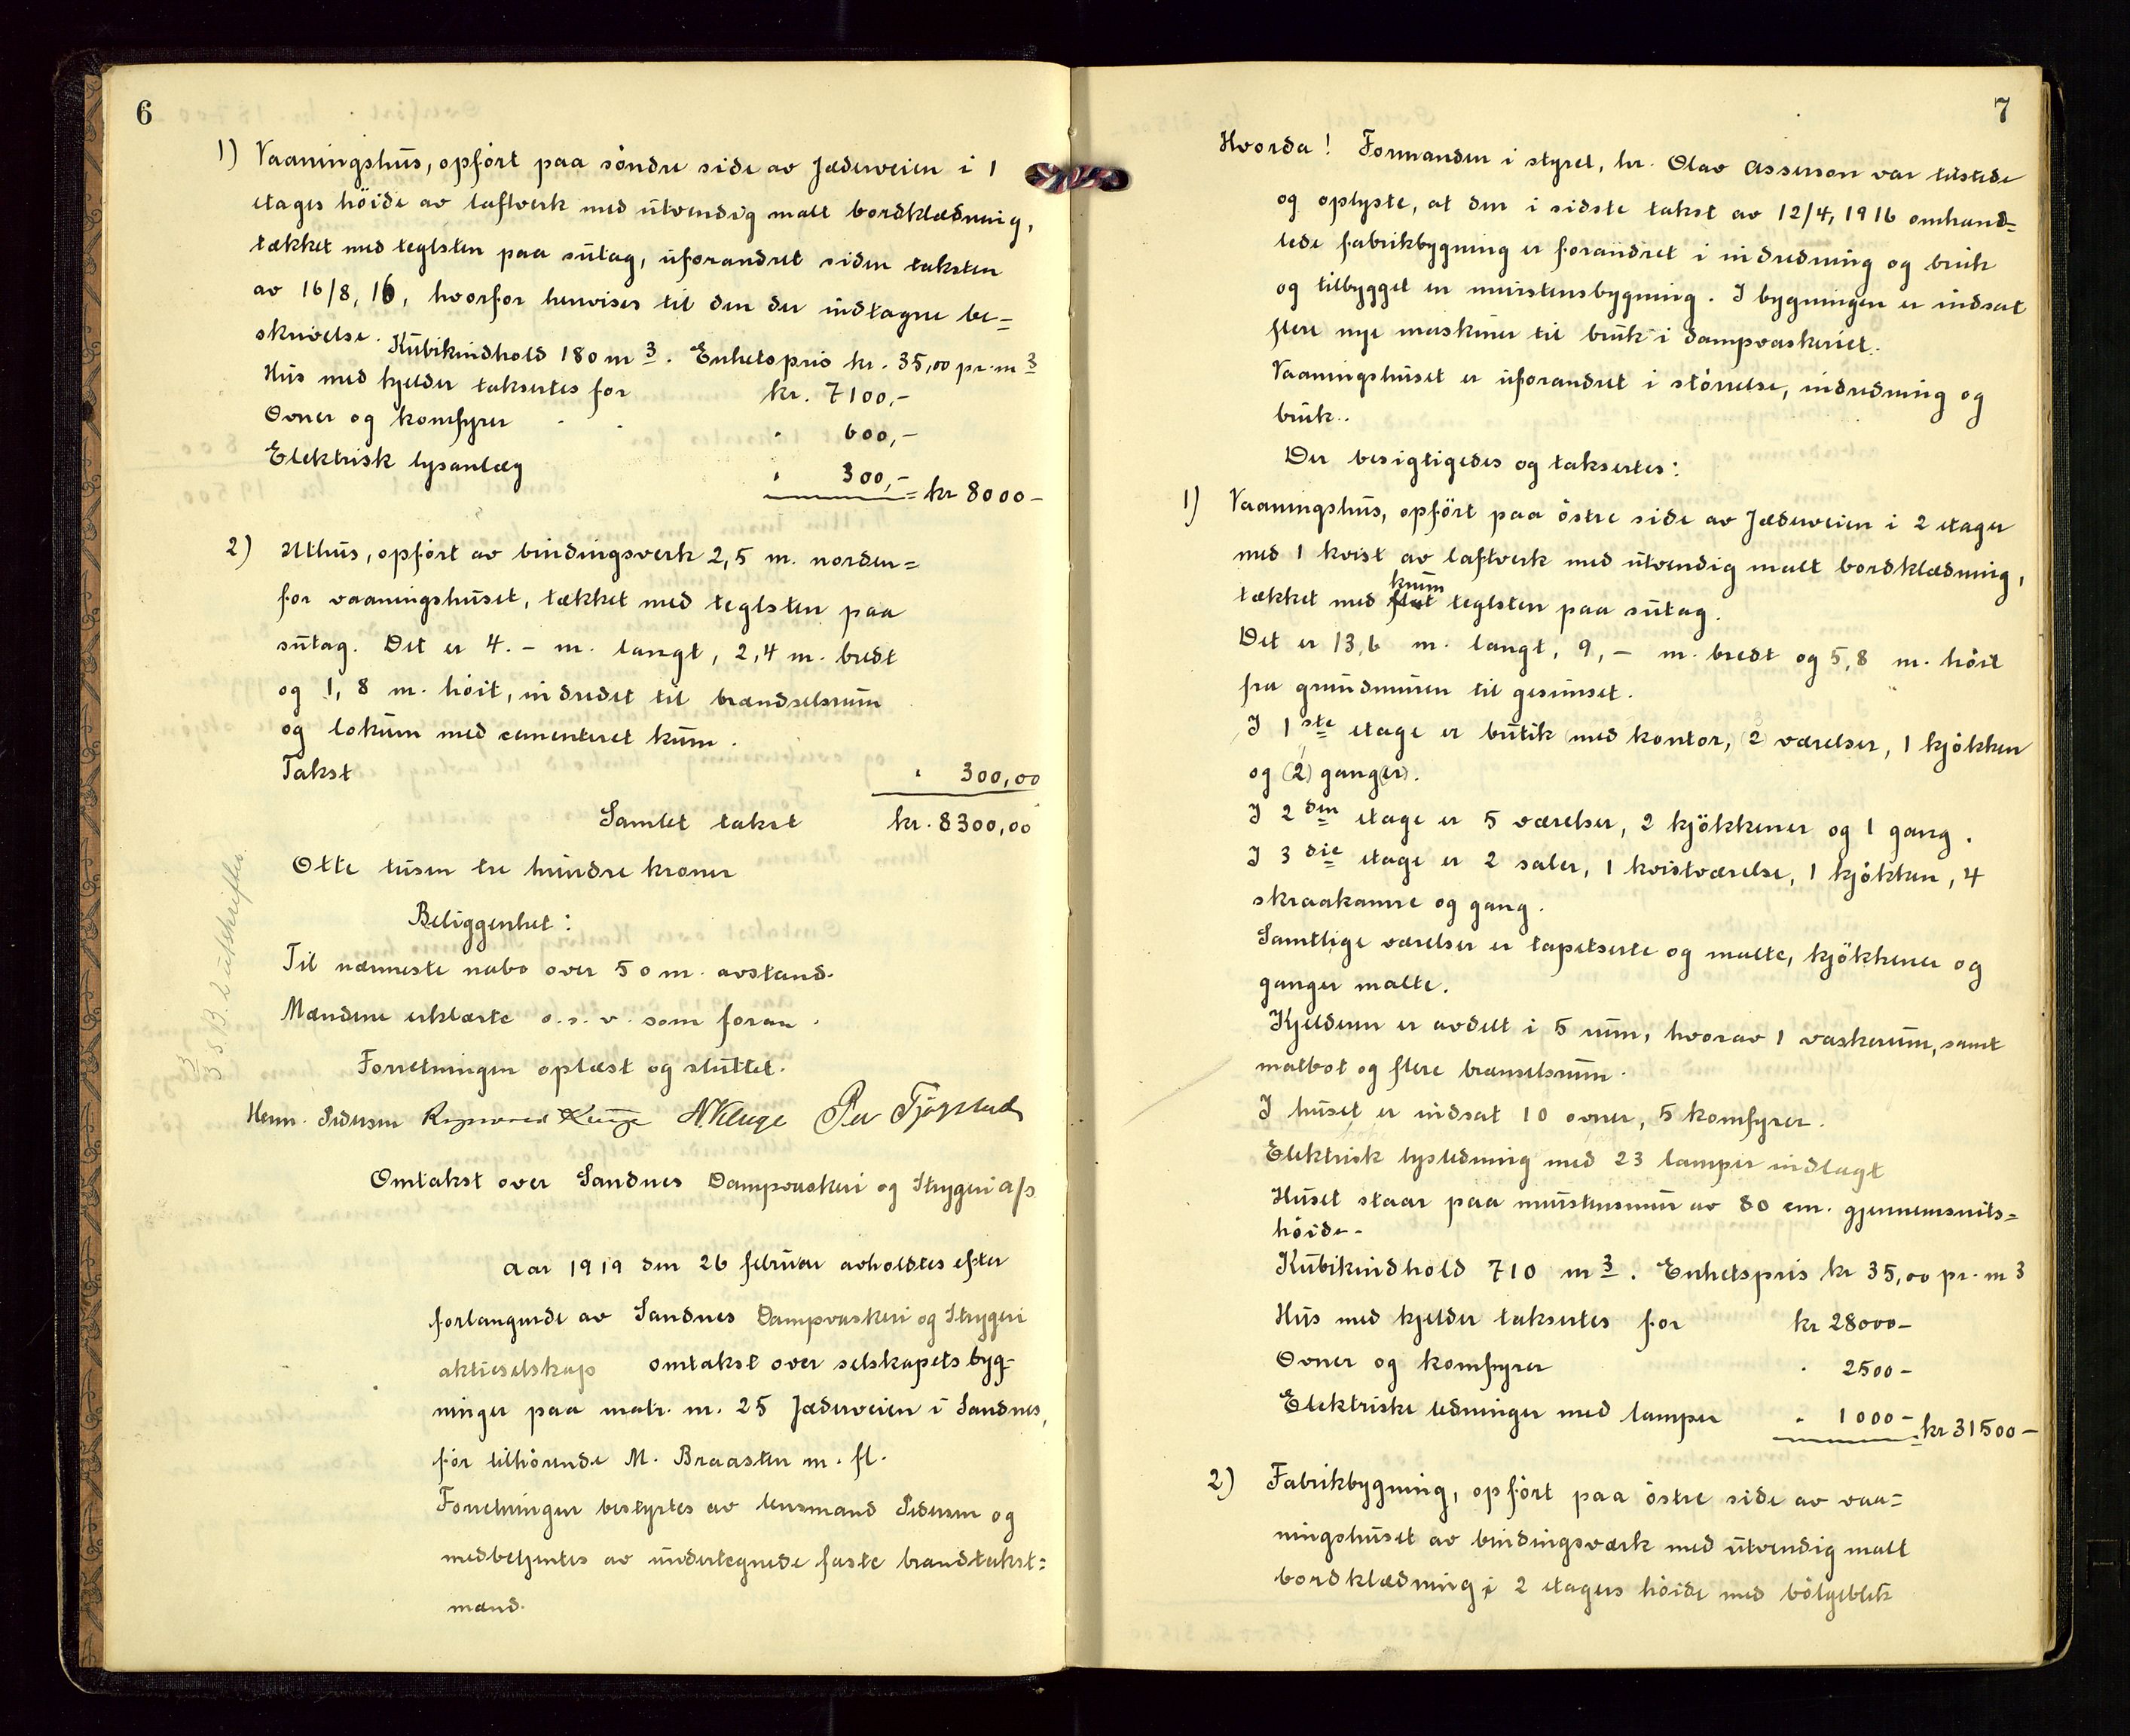 6
1) Vaaningshus, opført paa søndre side av Jæderveien i 1
etages höide av laftverk med utvendig malt bordklædning,
tækket med teglsten paa sutag, uforandret siden taksten
av 16/8, 16, hvorfor henvises til den der indtagne be=
skrivelse. Kubikindhold 180 m3. Enhetspris kr. 35,00 pr. m3
Hus med kjelder taksertes for kr. 7100,-
Ovner og komfyrer " 600,-
Elektrisk lysanlæg " 300,- = kr 8000-
2) Uthus, opført av bindingsverk 2,5 m. norden=
for vaaningshuset, tækket med teglsten paa
sutag. Det er 4.- m. langt, 2,4 m. bredt
og 1,8 m. höit, indredet til brændselsrum
og lokum med cementeret kum.
Takst " 300,00
Samlet takst kr. 8300,00
Otte tusen tre hundre kroner
Beliggenhet:
Til nærmeste nabo over 50 m. avstand.
Mændene erklærte o. s. v. som foran.
Forretningen oplæst og sluttet.
Henn. Pedersen N. Kluge Per Tjøgstad
3/3 S.B. 2 utskrifter.
Omtakst over Sandnes Dampvaskeri og Strygeri a/s
Aar 1919 den 26 februar avholdtes efter
forlangende av Sandnes Dampvaskeri og Strygeri
aktieselskap omtakst over selskapets byg-
ninger paa matr. nr. 25 Jæderveien i Sandnes,
før tilhørende M. Braasten m. fl.
Forretningen bestyrtes av lensmand Pedersen og
medbetjentes av undertegnede faste brandtakst=
mænd.
7
Hvorda! Formanden i styret, hr. Olav Asserson var tilstede
og oplyste, at den i sidste takst av 12/4, 1916 omhand=
lede fabrikbygning er forandret i indredning og bruk
og tilbygget en murstensbygning. I bygningen er indsat
flere nye maskiner til bruk i dampvaskeriet.
Vaaningshuset er uforandret i størrelse, indredning og
bruk.
Der besigtigedes og taksertes:
1) Vaaningshus, opført paa östre side av Jæderveien i 2 etager
med 1 kvist av laftverk med utvendig malt bordklædning,
krum
tækket med flat teglsten paa sutag.
Det er 13,6 m. langt, 9,- m. bredt og 5,8 m. höit
fra grundmuren til gesimset.
I 1ste etage er butik (med kontor, (2) værelser, 1 kjökken
og (2) gang(er).
I 2den etage er 5 værelser, 2 kjökkener og 1 gang.
I 3die etage er 2 saler, 1 kvistværelse, 1 kjökken, 4
skraakamre og gang.
Samtlige værelser er tapetserte og malte, kjökkener og
ganger malte.
Kjelderen er avdelt i 5 rum, hvorav 1 vaskerum, samt
matbot og flere brænselsrum.
I huset er indsat 10 ovner, 5 komfyrer.
Elektrisk lysledning med 23 lamper indlagt
Huset staar paa murstensmur av 80 cm. gjennemsnits=
höide.
Kubikindhold 710 m3. Enhetspris kr 35,00 pr. m3
Hus med kjelder taksertes for kr 28000-
Ovner og komfyrer " 2500-
Elektriske ledninger med lamper " 1000- = kr 31500-
2) Fabrikbygning, opført paa östre side av vaa=
ningshuset av bindingsværk med utvendig malt
bordklædning i 2 etagers höide med bölgeblik